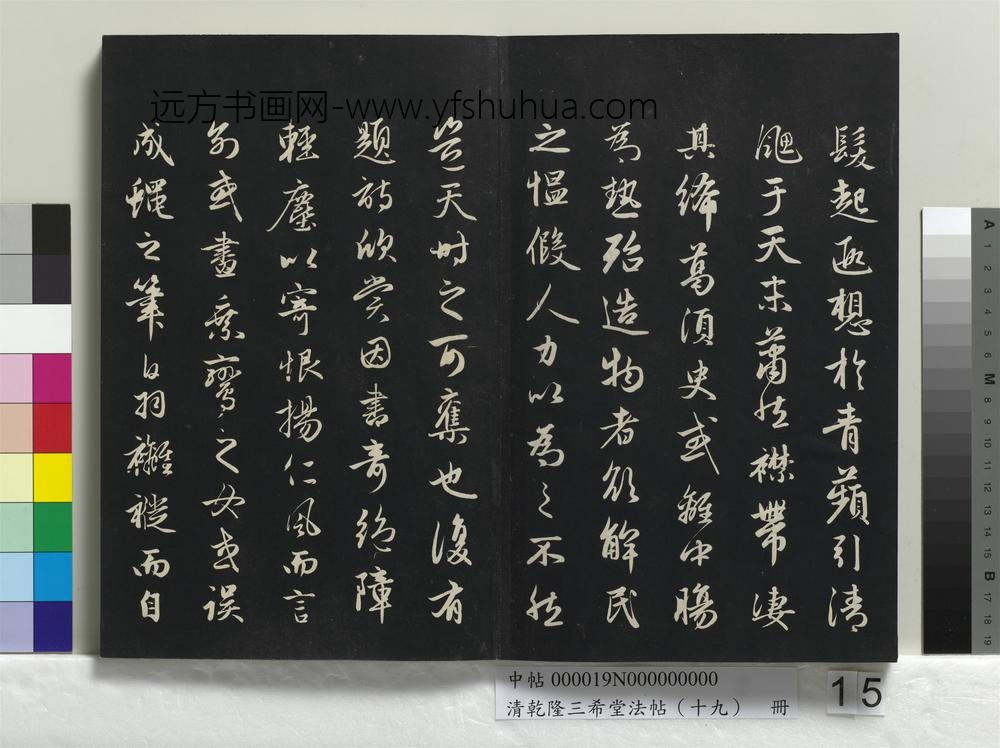 远方书画网-www.yfshuhua.com
髮起遐想於青蘋引清
颸于天末蕭然襟帶凄
其絺葛須臾或離中腸
為熱殆造物者欲解民
之慍假人力以為之不然
豈天時之可奪也復有
題詩欣赏因書奇絶障
輕塵以寄恨揚仁風而言
別或畫乘鸞之女或误
成蠅之筆白羽襹褷而自
中帖 000019N000000000
清乾隆三希堂法帖（十九） 冊
15
A
1
2
3
4
5
6
M
8
9
10
11
12
13
14
15
B
17
18
19